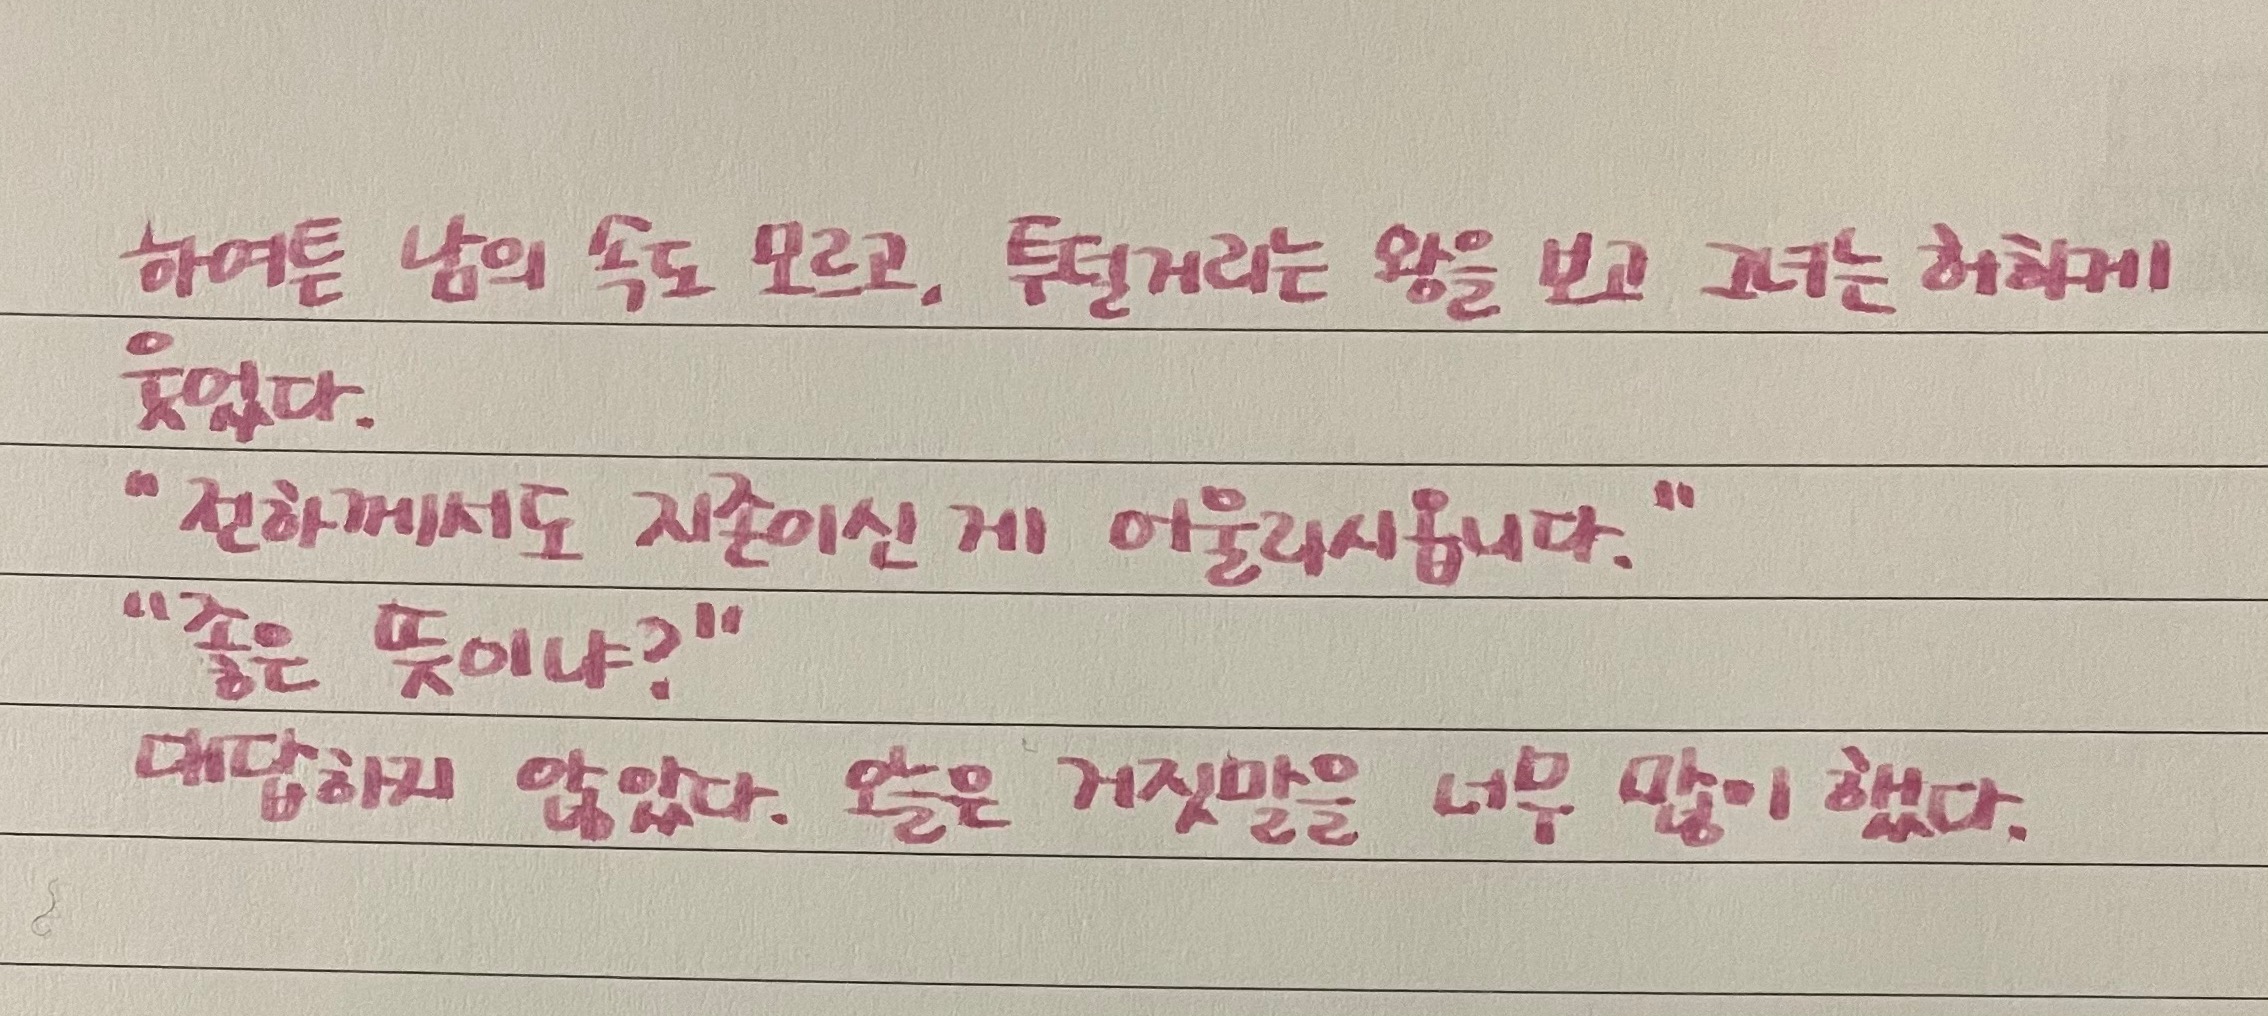 하여튼 남의 속도 모르고. 투덜거리는 왕을 보고 그녀는 허하게
웃었다.
"전하께서도 지존이신 게 어울리시옵니다."
"좋은 뜻이냐?"
대답하지 않았다. 오늘은 거짓말을 너무 많이 했다.